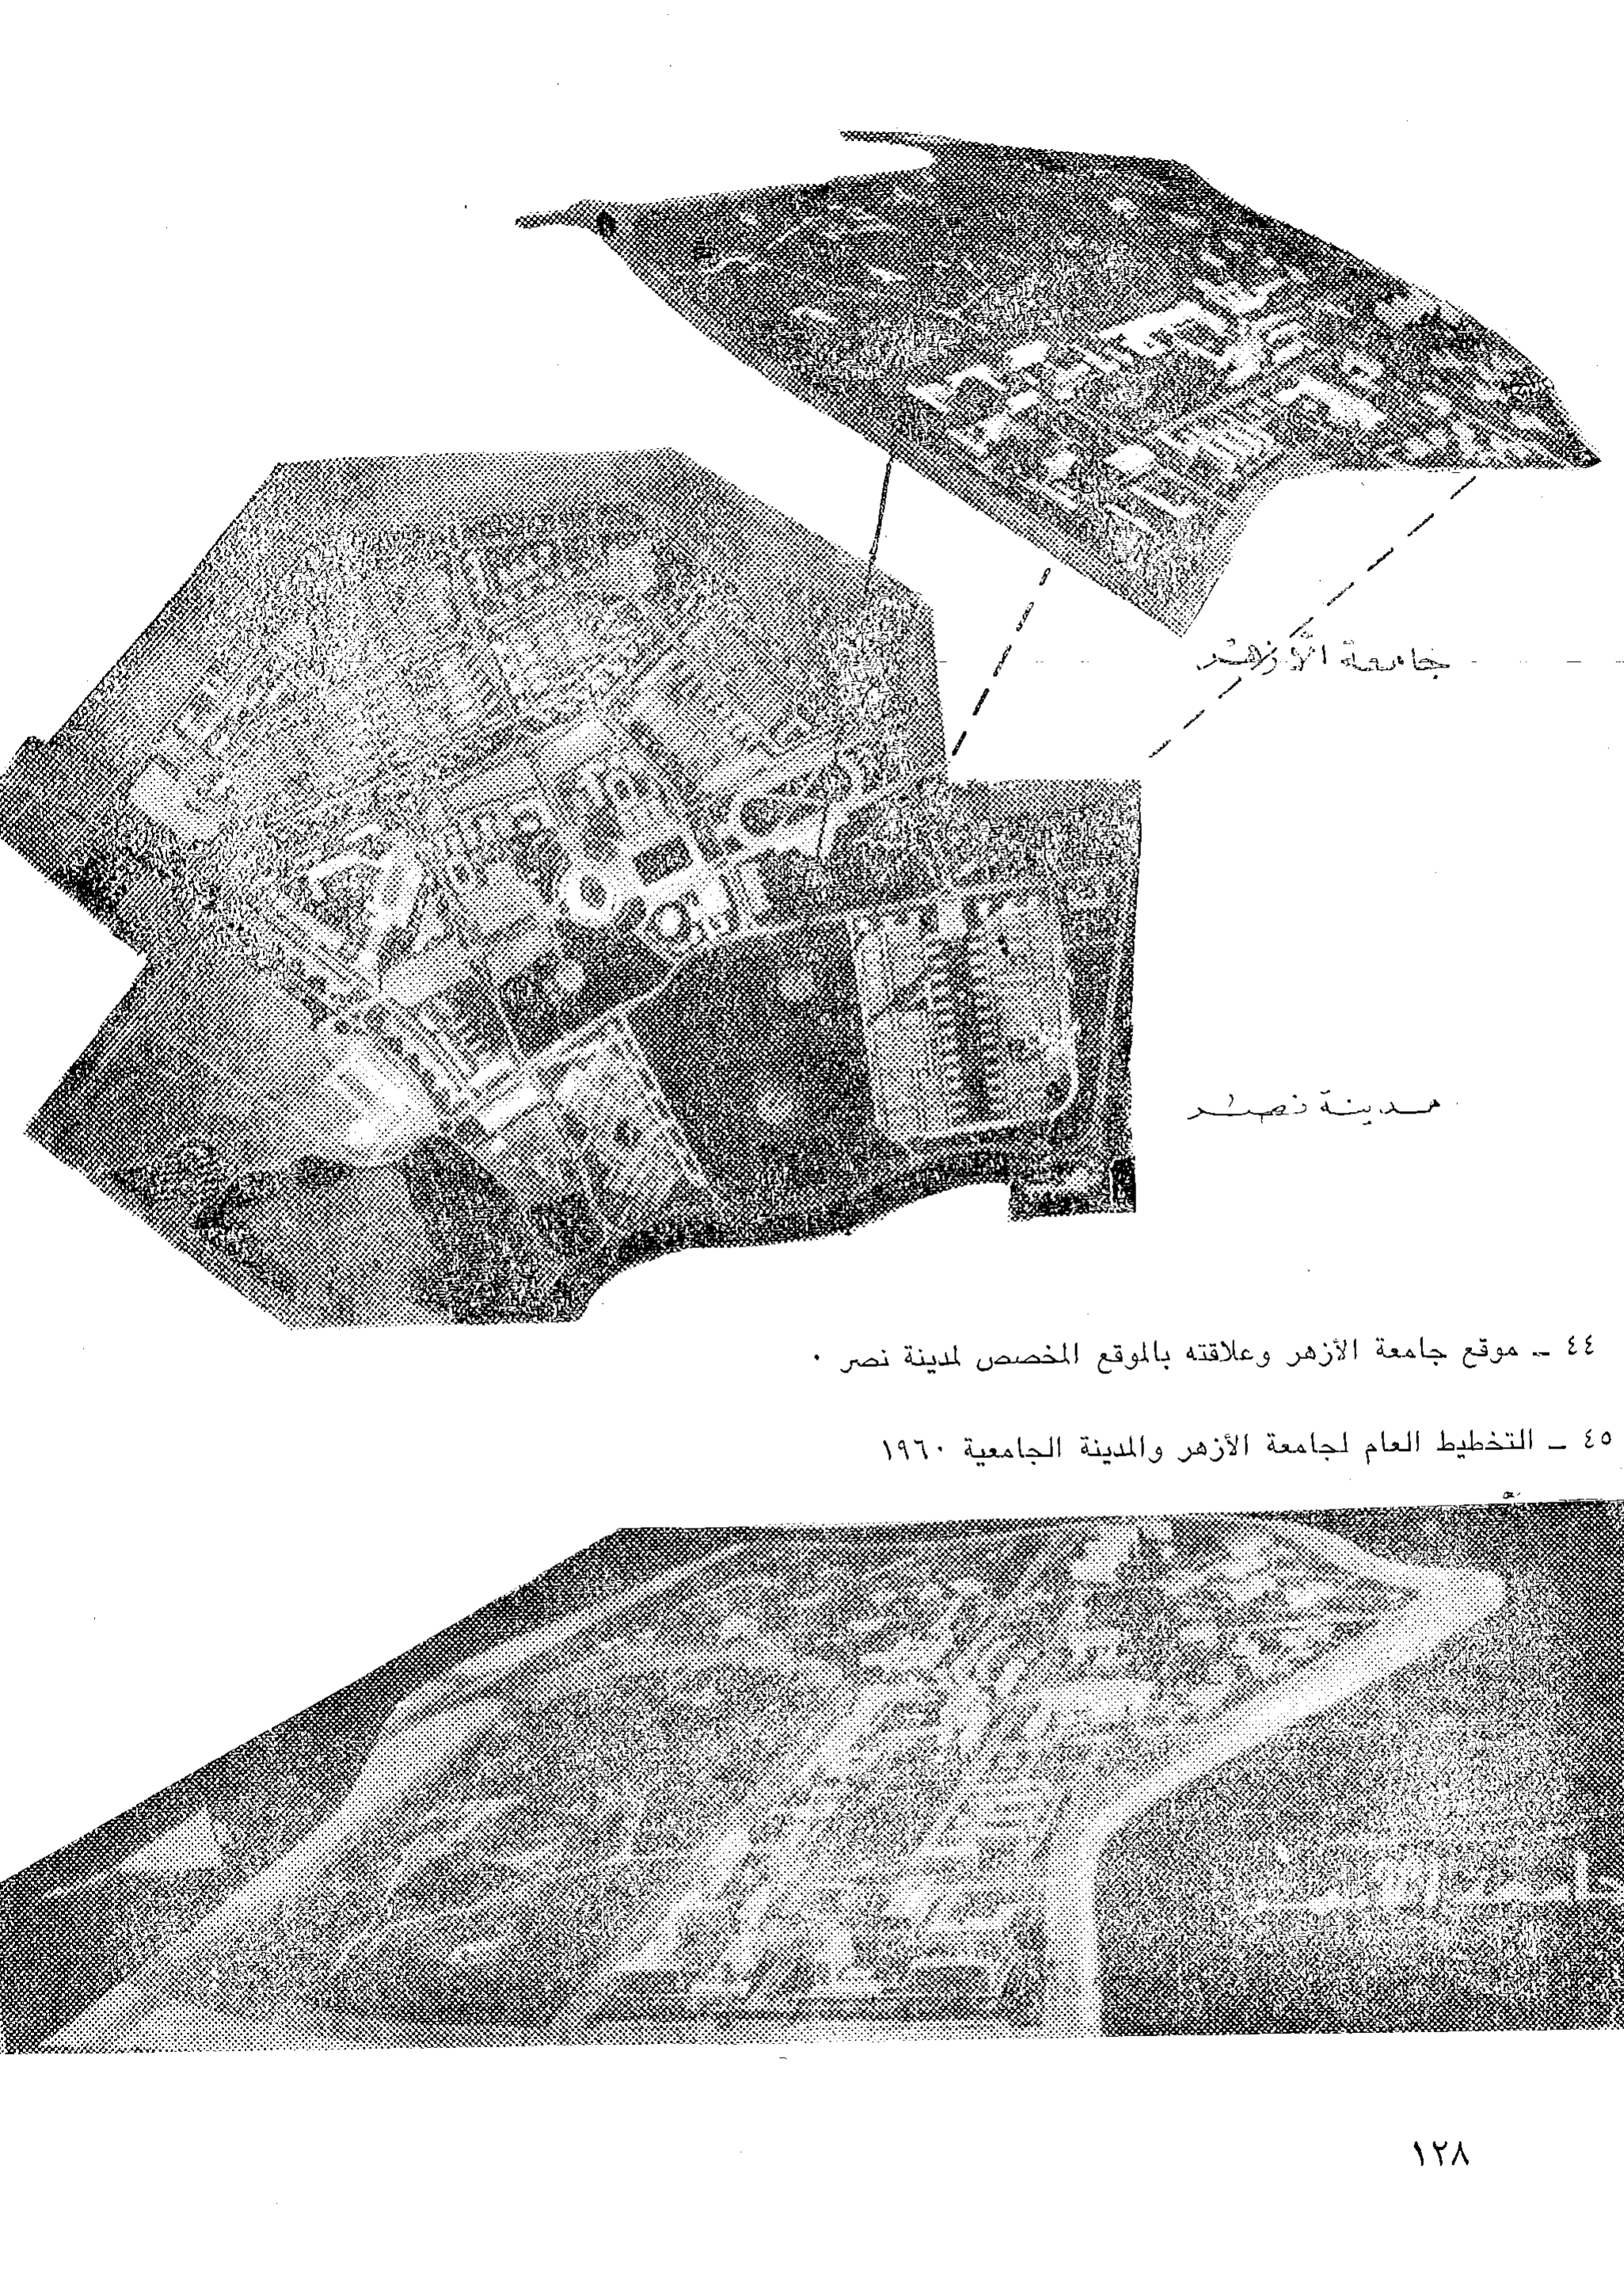 جامعة الأزهر
مدينة نصر
٤٤ ـ موقع جامعة الأزهر وعلاقته بالموقع المخصص لمدينة نصر ٠
٤٥ ـ التخطيط العام لجامعة الأزهر والمدينة الجامعية ١٩٦٠
١٢٨